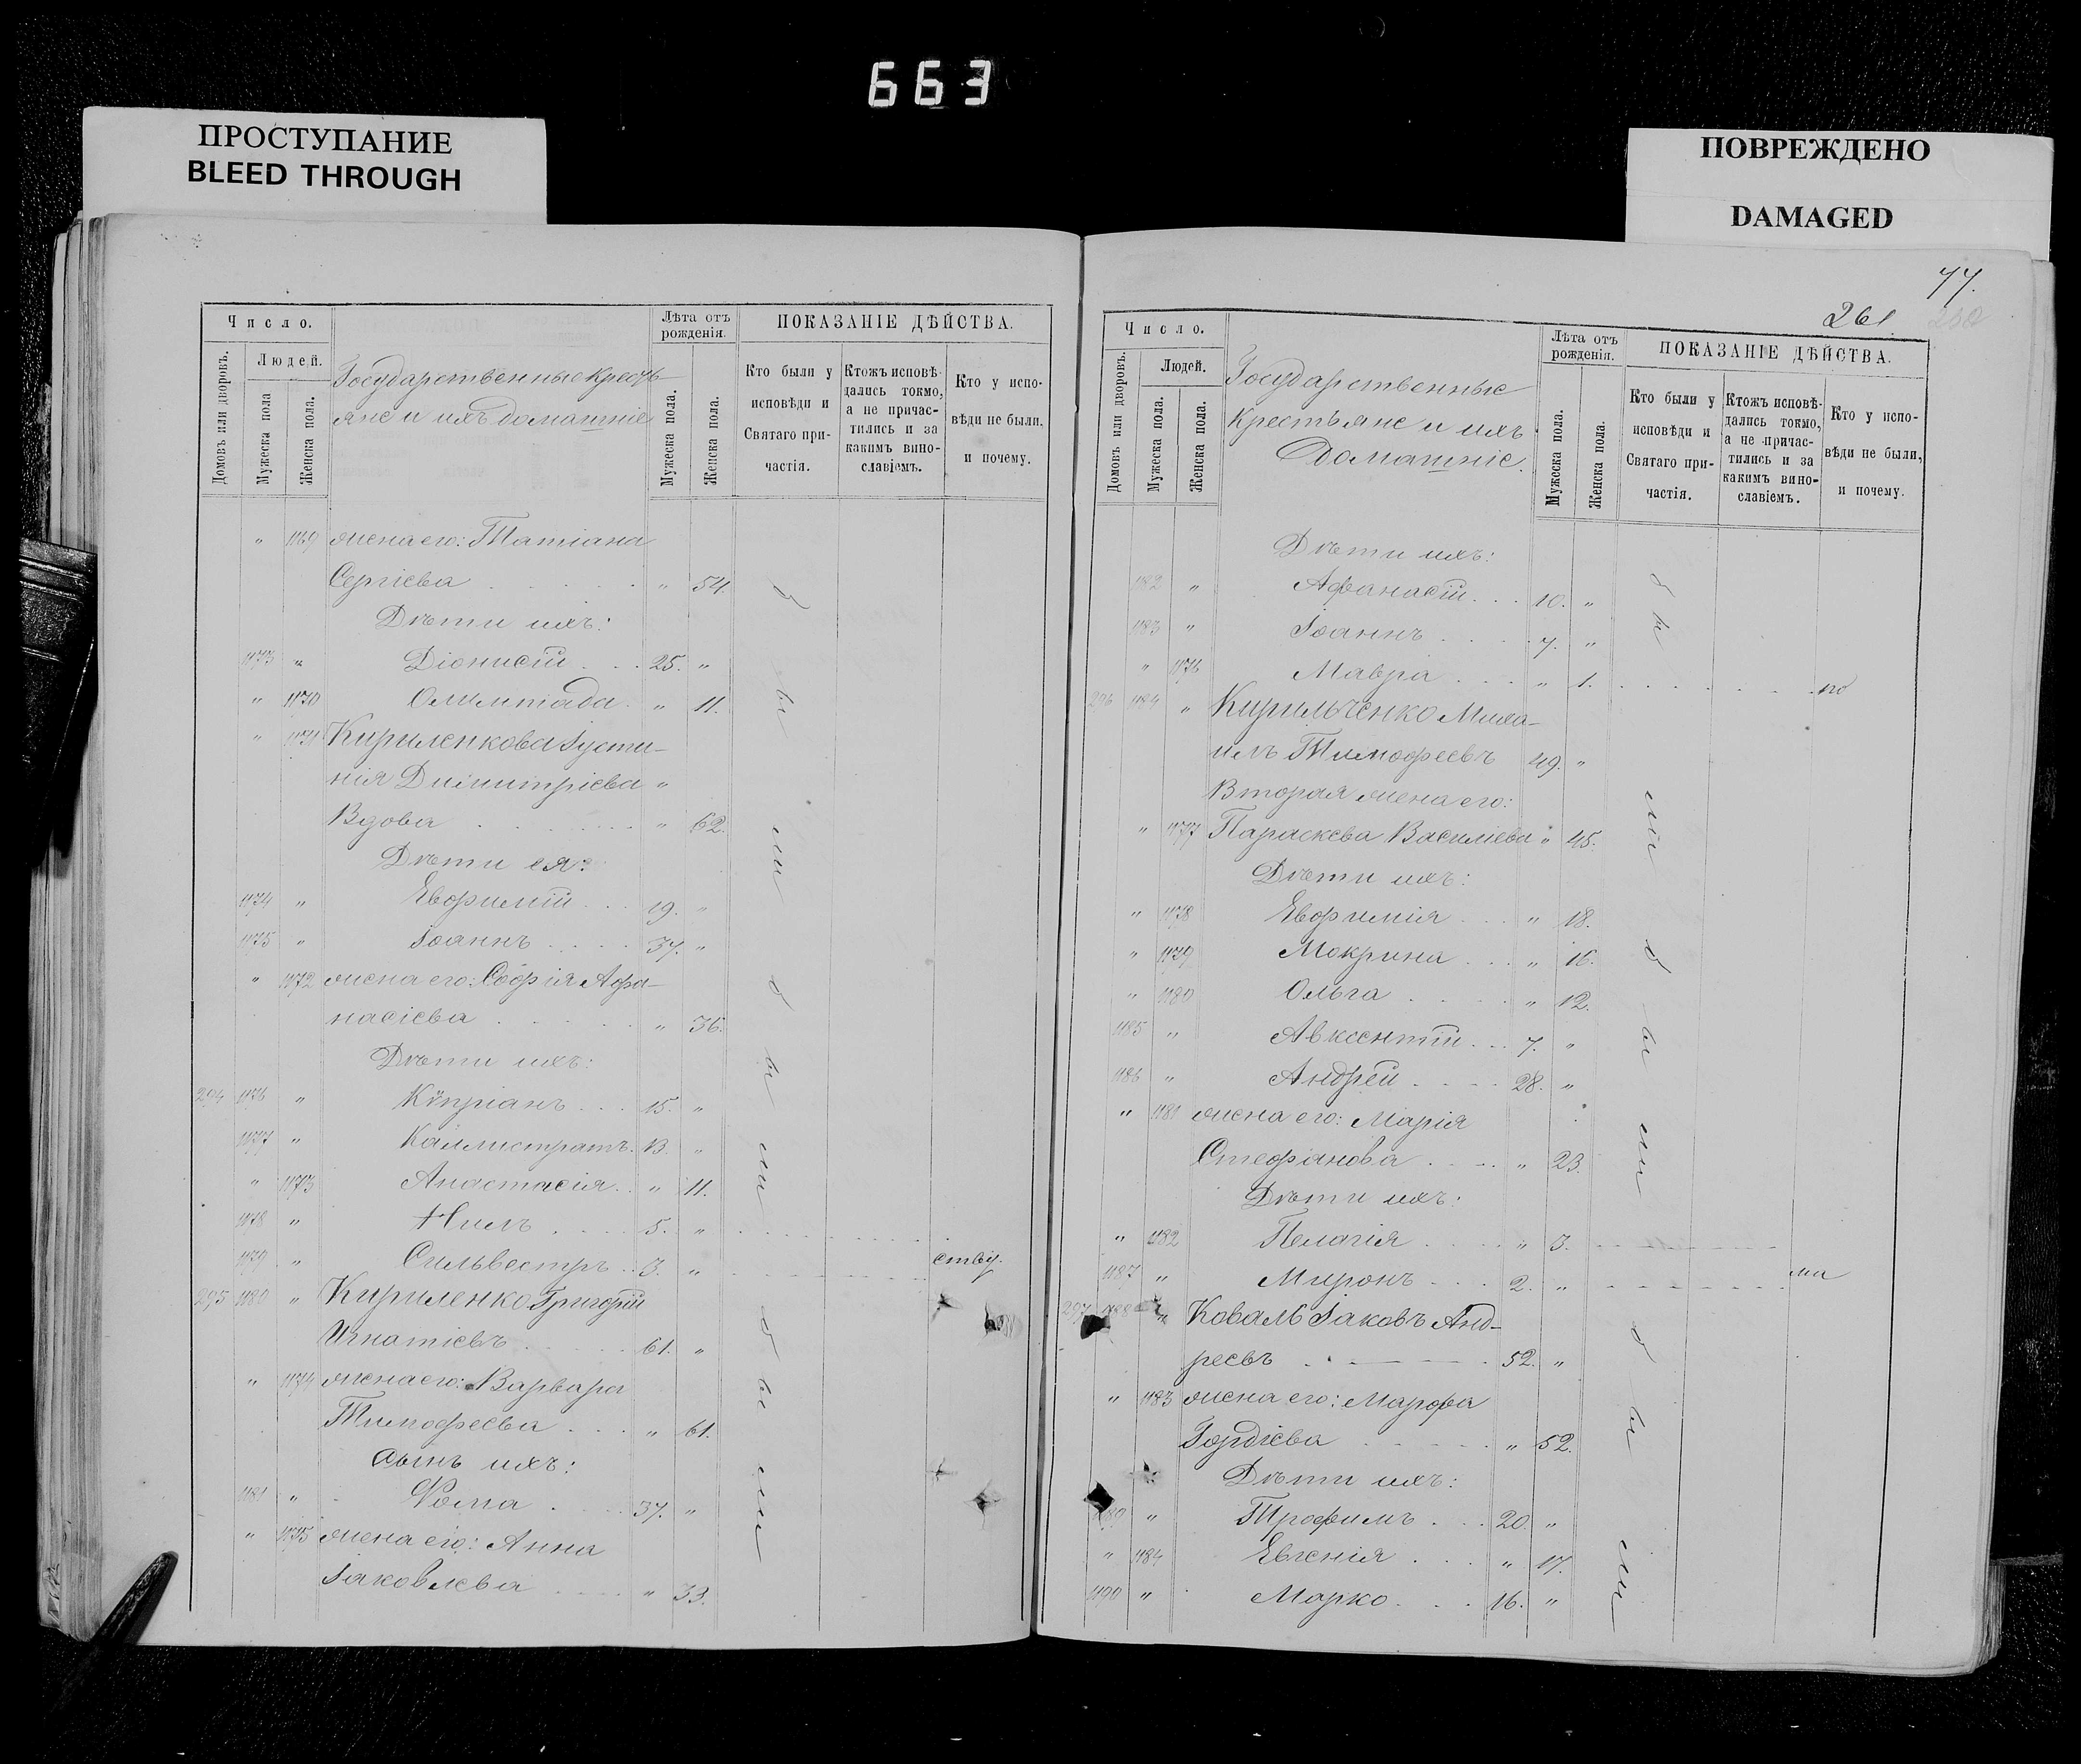 663
ПРОСТУПАНИЕ
BLEED THROUGH
ПОВРЕЖДЕНО
DAMAGED
Число.
Людей.
Домовъ или дворовъ.
Мужеска пола
Женска пола.
Государственные кресть-
яне и ихъ домашніе
Лѣта отъ рожденія.
Мужеска пола.
Женска пола.
ПОКАЗАНІЕ ДѢЙСТВА.
Кто были у исповѣди и Святаго при-частія.
Ктожъ исповѣ-дались токмо, а не причас-тились и за какимъ вино-славіемъ.
Кто у испо-вѣди не были, и почему.
" 1169 жена его: Татіана
Сергіева " 54.
Дѣти ихъ:
1173 " Діонисій 25. "
" 1170 Олимпіада " 11.
" 1171 Кириленкова Іусти-
нія Димитріева "
Вдова " 62.
Дѣти ея:
1174 " Евфимій 19. "
1175 " Іоаннъ 37. "
" 1172 жена его: Софія Афа-
насіева " 36.
Дѣти ихъ:
294 1176 " Кѵпріанъ 15. "
1177 " Каллистратъ 13. "
" 1173 Анастасія " 11.
1178 " Нилъ 5. "
1179 " Сильвестръ 3. "
295 1180 " Кириленко Григорій
Игнатіевъ 61. "
" 1174 жена его: Варвара
Тимофеева " 61.
Сынъ ихъ:
1181 " Ѳома 37. "
" 1175 жена его: Анна
Іаковлева " 33.
были
были
были
77.
261
Число.
Людей.
Домовъ или дворовъ.
Мужеска пола.
Женска пола.
Государственные
крестьяне и ихъ
домашніе.
Лѣта отъ рожденія.
Мужеска пола.
Женска пола.
ПОКАЗАНІЕ ДѢЙСТВА.
Кто были у исповѣди и Святаго при-частія.
Ктожъ исповѣ-дались токмо, а не причас-тились и за какимъ вино-славіемъ.
Кто у испо-вѣди не были, и почему.
Дѣти ихъ:
1182 " Афанасій 10. "
1183 " Іоаннъ 7. "
" 1176 Мавра " 1. по
296 1184 " Кирильченко Миха-
илъ Тимофеевъ 49. "
Вторая жена его:
" 1177 Параскева Василіева " 45.
Дѣти ихъ:
" 1178 Евфимія " 18.
" 1179 Мокрина " 16.
" 1180 Ольга " 12.
1185 " Авксентій 7. "
1186 " Андрей 28. "
" 1181 жена его: Марія
Стефанова " 23.
Дѣти ихъ:
" 1182 Пелагія " 3.
1187 " Миронъ 2. "
297 1188 " Коваль Іаковъ Анд-
реевъ 52. "
" 1183 жена его: Марфа
Гордіева " 52.
Дѣти ихъ:
1189 " Трофимъ 20. "
" 1184 Евгенія " 17.
1190 " Марко 16. "
были
были
были